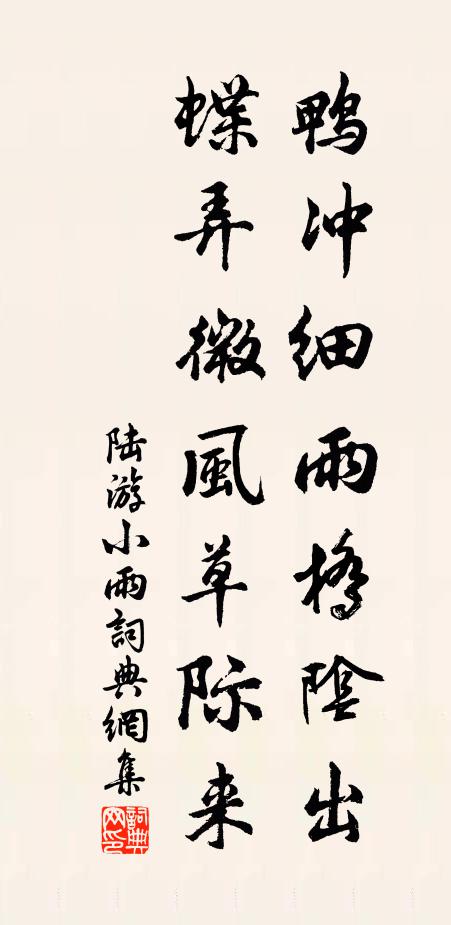 鸭冲细雨橋陰出
蝶弄微風草际来
陆游小雨詞典網集
詞典网印